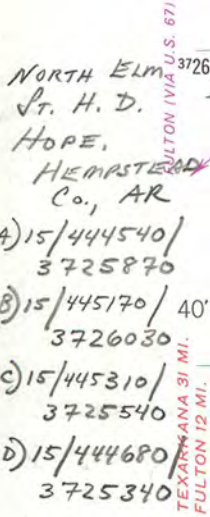 NORTH ELM
ST. H. D.
HOPE,
HEMPSTEAD
Co., AR
A) 15/444540/
3725870
B) 15/445170/
3726030
C) 15/445310/
3725540
D) 15/444680/
3725340
3726
40'
FULTON (VIA U.S. 67)
TEXARKANA 31 MI.
FULTON 12 MI.